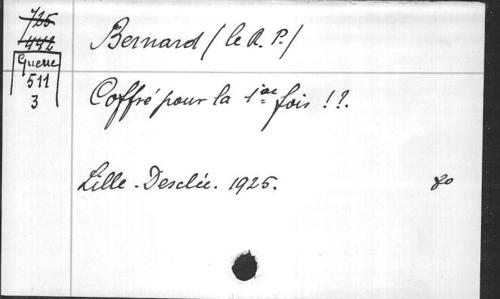 725
442
Guerre
511
3
Bernard (le R. P.)
Coffré pour la 1ère fois !?.
Lille - Desclée. 1925. 80